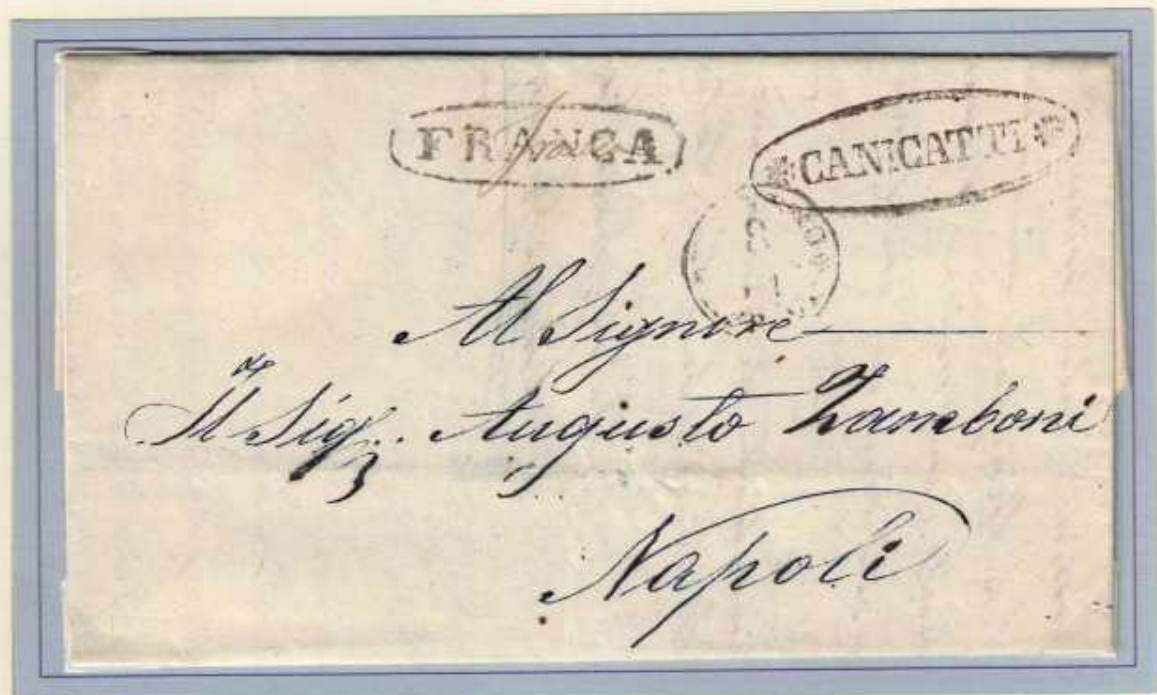 FRANCA
CANICATTI
Al Signore
Il Sig.r Augusto Zamboni
Napoli